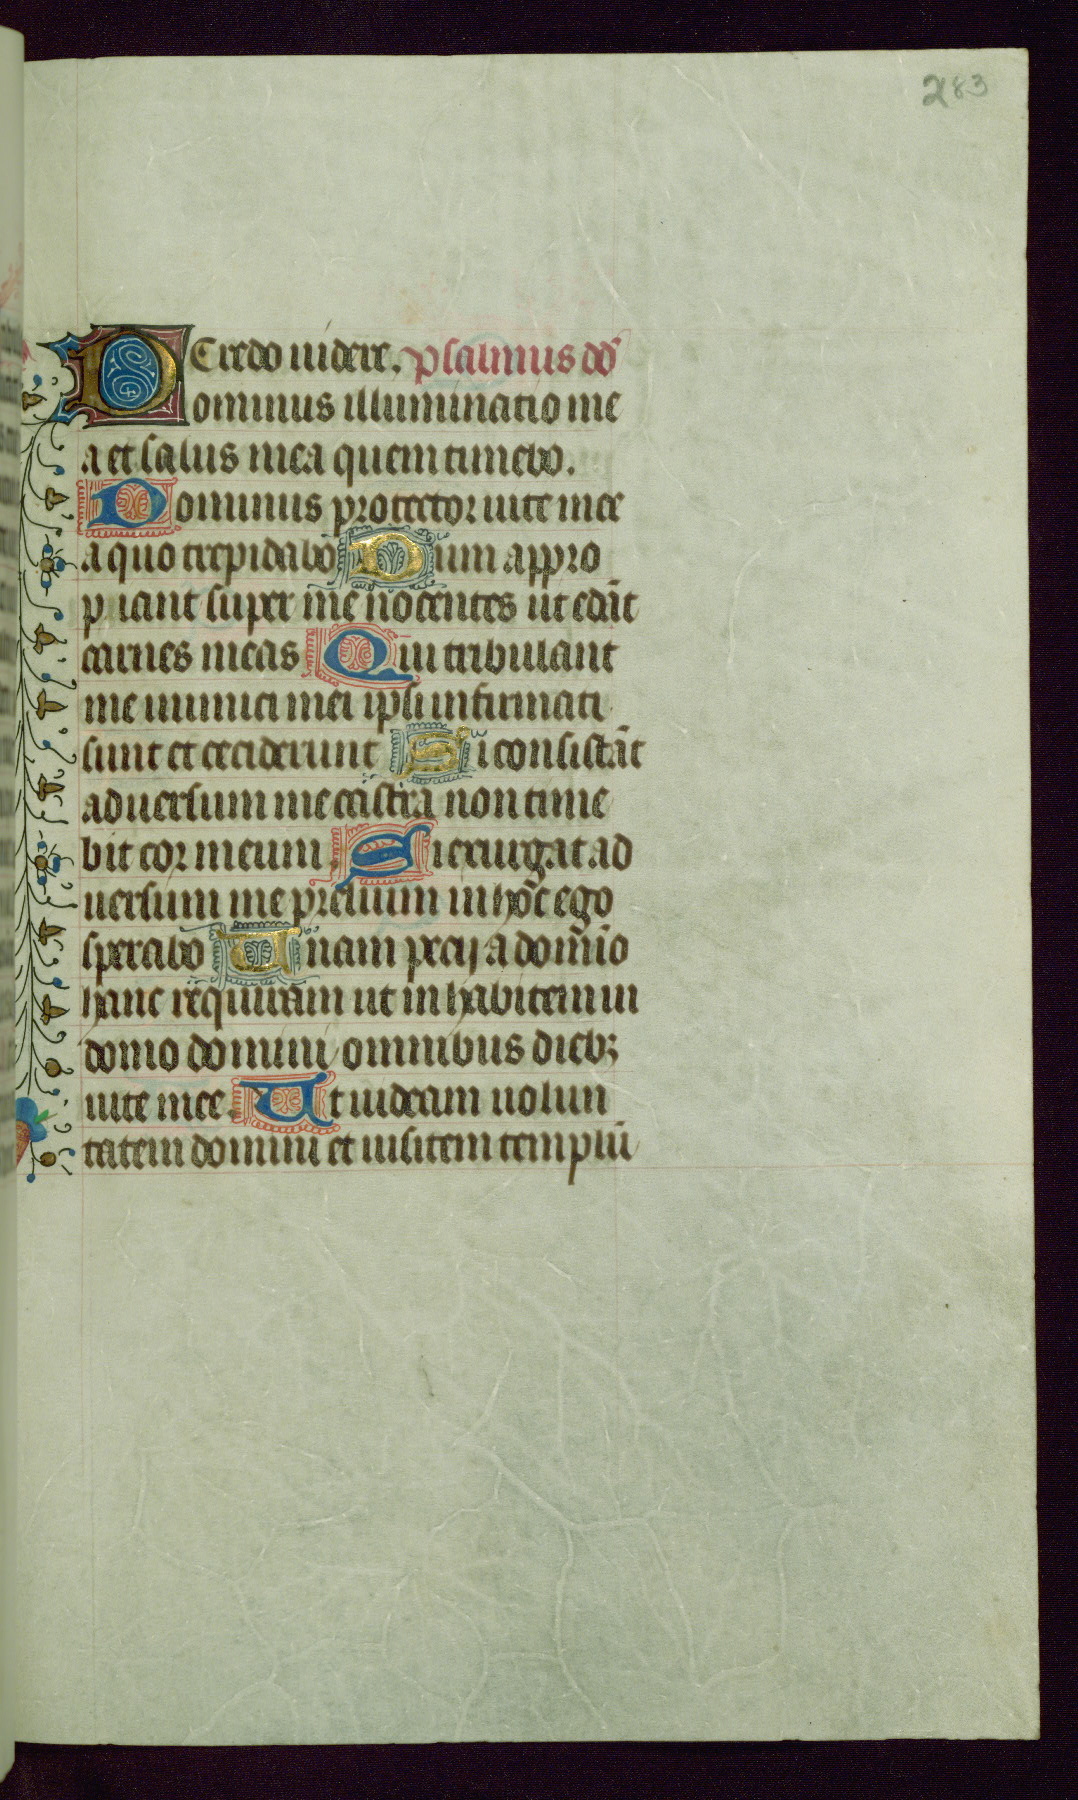 283
Credo uidere. psalmus dd̄
Dominus illuminatio me
a et salus mea quem timebo.
Dominus protector uite mee
a quo trepidabo Dum appro
piant super me nocentes ut edāt
carnes meas Qui tribulant
me inimici mei ipsi infirmati
sunt et ceciderunt Si consistāt
aduersum me castra non time
bit cor meum. Si exurgat ad
uersum me prelium in hoc ego
sperabo Unam pecij a domīo
hanc requiram ut inhabitem in
domo domini omnibus dieb;
uite mee. Ut uideam uolun
tatem domini et uisitem templū